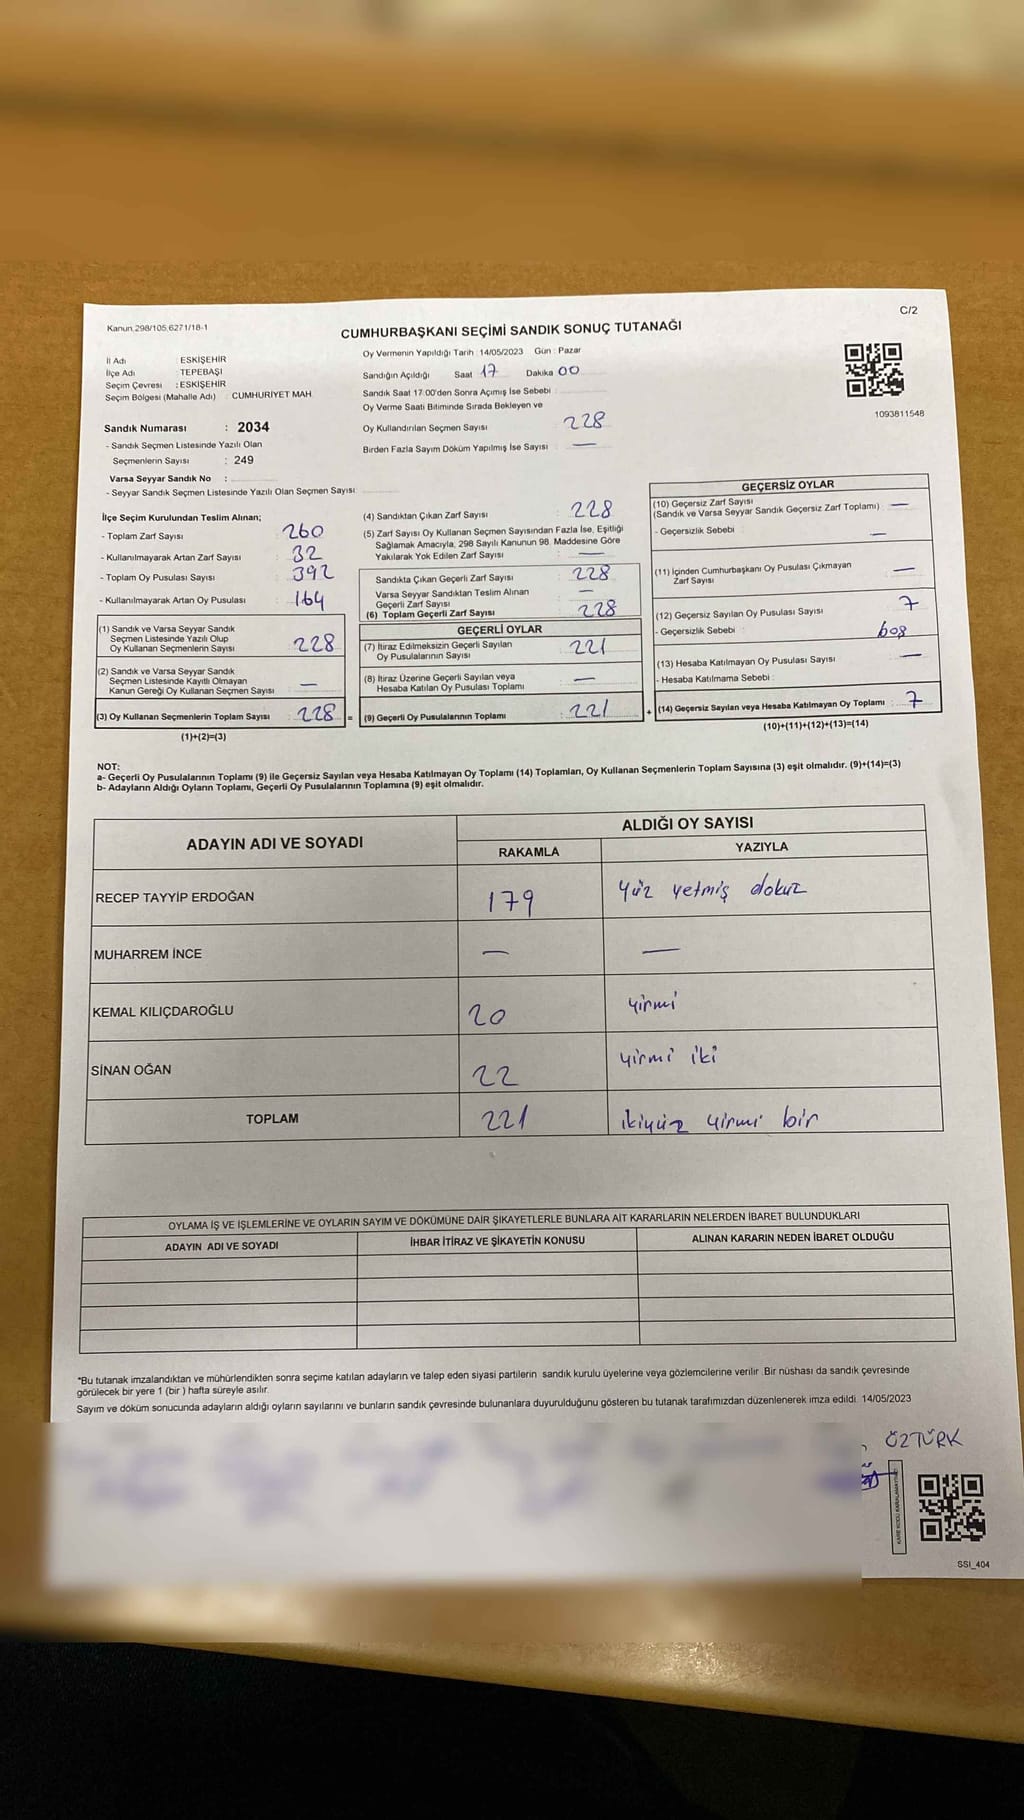 Kanun,298/105,6271/18-1
C/2
CUMHURBAŞKANI SEÇİMİ SANDIK SONUÇ TUTANAĞI
İl Adı : ESKİŞEHİR
İlçe Adı : TEPEBAŞI
Seçim Çevresi : ESKİŞEHİR
Seçim Bölgesi (Mahalle Adı) : CUMHURİYET MAH
Sandık Numarası : 2034
- Sandık Seçmen Listesinde Yazılı Olan
Seçmenlerin Sayısı : 249
Varsa Seyyar Sandık No :
- Seyyar Sandık Seçmen Listesinde Yazılı Olan Seçmen Sayısı:
Oy Vermenin Yapıldığı Tarih : 14/05/2023 Gün : Pazar
Sandığın Açıldığı Saat 17 Dakika 00
Sandık Saat 17:00'den Sonra Açımış İse Sebebi :
Oy Verme Saati Bitiminde Sırada Bekleyen ve
Oy Kullandırılan Seçmen Sayısı : 228
Birden Fazla Sayım Döküm Yapılmış İse Sayısı : —
1093811548
İlçe Seçim Kurulundan Teslim Alınan;
- Toplam Zarf Sayısı : 260
- Kullanılmayarak Artan Zarf Sayısı : 32
- Toplam Oy Pusulası Sayısı : 392
- Kullanılmayarak Artan Oy Pusulası : 164
(1) Sandık ve Varsa Seyyar Sandık
Seçmen Listesinde Yazılı Olup
Oy Kullanan Seçmenlerin Sayısı : 228
(2) Sandık ve Varsa Seyyar Sandık
Seçmen Listesinde Kayıtlı Olmayan
Kanun Gereği Oy Kullanan Seçmen Sayısı : —
(3) Oy Kullanan Seçmenlerin Toplam Sayısı : 228 =
(1)+(2)=(3)
(4) Sandıktan Çıkan Zarf Sayısı : 228
(5) Zarf Sayısı Oy Kullanan Seçmen Sayısından Fazla İse, Eşitliği
Sağlamak Amacıyla, 298 Sayılı Kanunun 98. Maddesine Göre
Yakılarak Yok Edilen Zarf Sayısı : —
Sandıkta Çıkan Geçerli Zarf Sayısı : 228
Varsa Seyyar Sandıktan Teslim Alınan
Geçerli Zarf Sayısı : —
(6) Toplam Geçerli Zarf Sayısı : 228
GEÇERLİ OYLAR
(7) İtiraz Edilmeksizin Geçerli Sayılan
Oy Pusulalarının Sayısı : 221
(8) İtiraz Üzerine Geçerli Sayılan veya
Hesaba Katılan Oy Pusulası Toplamı : —
(9) Geçerli Oy Pusulalarının Toplamı : 221 +
GEÇERSİZ OYLAR
(10) Geçersiz Zarf Sayısı
(Sandık ve Varsa Seyyar Sandık Geçersiz Zarf Toplamı) : —
- Geçersizlik Sebebi : —
(11) İçinden Cumhurbaşkanı Oy Pusulası Çıkmayan
Zarf Sayısı : —
(12) Geçersiz Sayılan Oy Pusulası Sayısı : 7
- Geçersizlik Sebebi : boş
(13) Hesaba Katılmayan Oy Pusulası Sayısı : —
- Hesaba Katılmama Sebebi :
(14) Geçersiz Sayılan veya Hesaba Katılmayan Oy Toplamı : 7
(10)+(11)+(12)+(13)=(14)
NOT:
a- Geçerli Oy Pusulalarının Toplamı (9) ile Geçersiz Sayılan veya Hesaba Katılmayan Oy Toplamı (14) Toplamları, Oy Kullanan Seçmenlerin Toplam Sayısına (3) eşit olmalıdır. (9)+(14)=(3)
b- Adayların Aldığı Oyların Toplamı, Geçerli Oy Pusulalarının Toplamına (9) eşit olmalıdır.
ADAYIN ADI VE SOYADI
ALDIĞI OY SAYISI
RAKAMLA YAZIYLA
RECEP TAYYİP ERDOĞAN 179 yüz yetmiş dokuz
MUHARREM İNCE — —
KEMAL KILIÇDAROĞLU 20 yirmi
SİNAN OĞAN 22 yirmi iki
TOPLAM 221 ikiyüz yirmi bir
OYLAMA İŞ VE İŞLEMLERİNE VE OYLARIN SAYIM VE DÖKÜMÜNE DAİR ŞİKAYETLERLE BUNLARA AİT KARARLARIN NELERDEN İBARET BULUNDUKLARI
ADAYIN ADI VE SOYADI İHBAR İTİRAZ VE ŞİKAYETİN KONUSU ALINAN KARARIN NEDEN İBARET OLDUĞU
*Bu tutanak imzalandıktan ve mühürlendikten sonra seçime katılan adayların ve talep eden siyasi partilerin sandık kurulu üyelerine veya gözlemcilerine verilir. Bir nüshası da sandık çevresinde
görülecek bir yere 1 (bir ) hafta süreyle asılır.
Sayım ve döküm sonucunda adayların aldığı oyların sayılarını ve bunların sandık çevresinde bulunanlara duyurulduğunu gösteren bu tutanak tarafımızdan düzenlenerek imza edildi. 14/05/2023
ÖZTÜRK
SSI_404